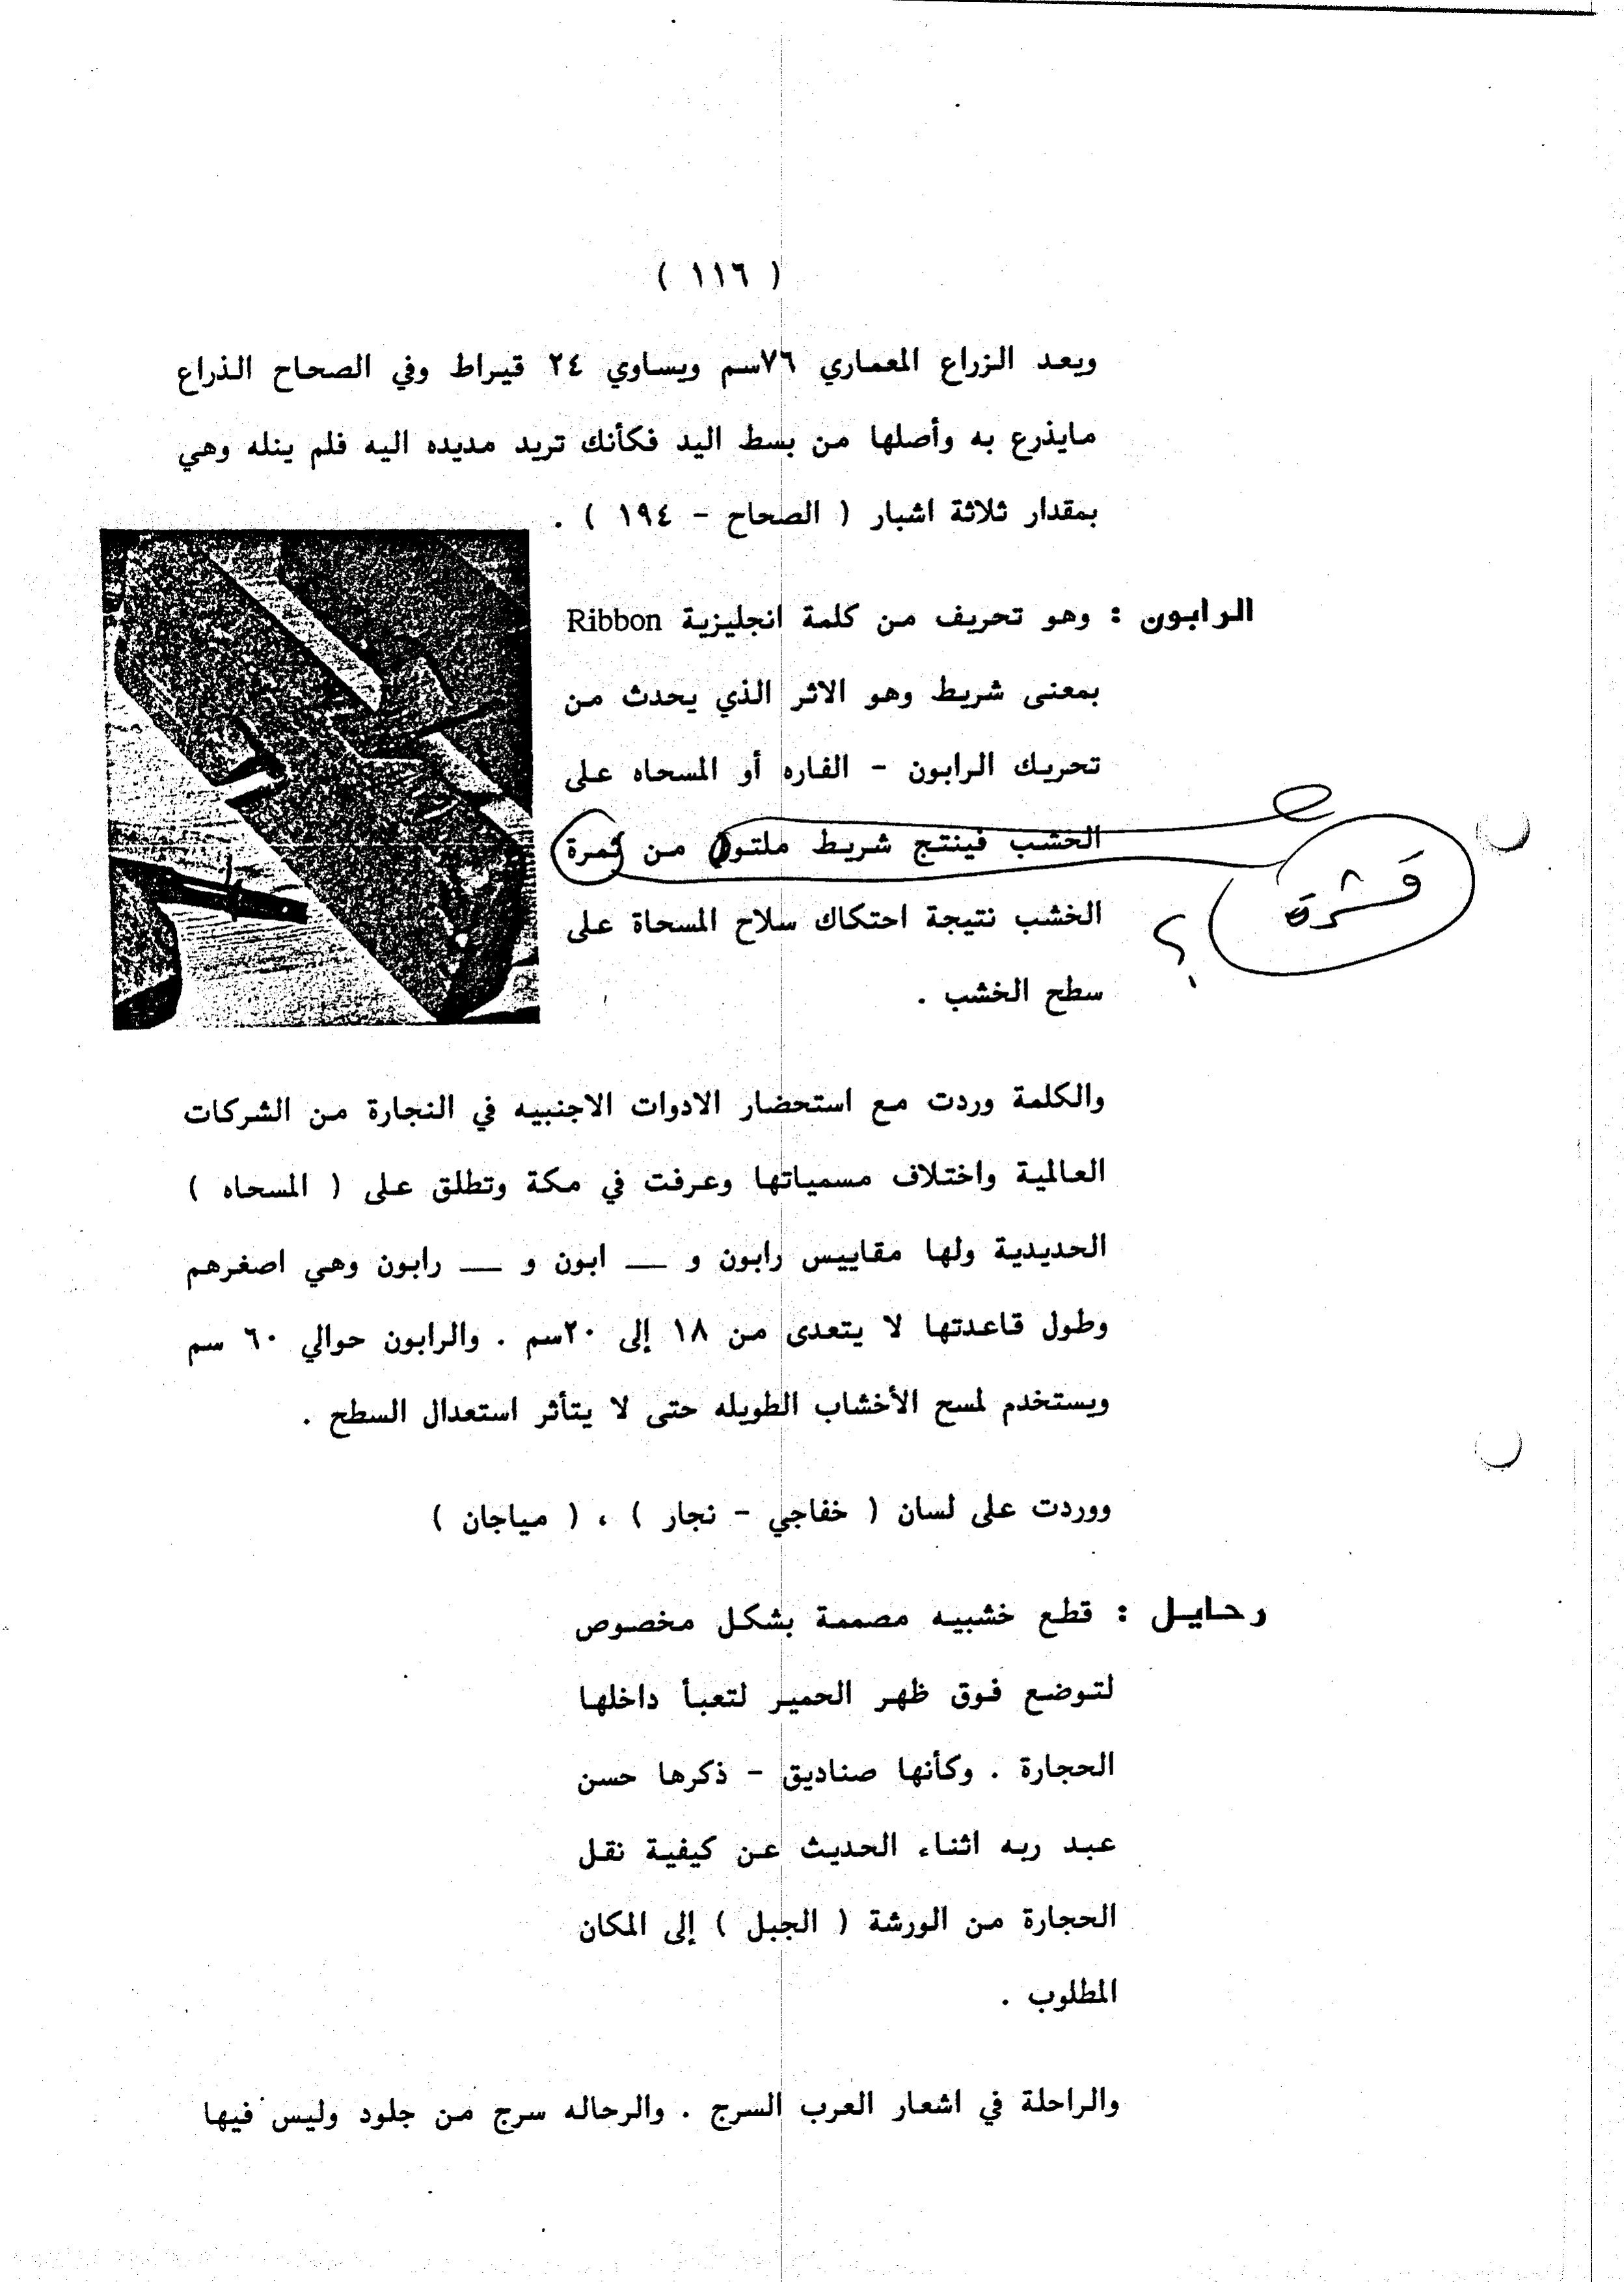 ( ١١٦ )
ويعد الزراع المعماري ٧٦سم ويساوي ٢٤ قيراط وفي الصحاح الذراع
مايذرع به وأصلها من بسط اليد فكأنك تريد مديده اليه فلم ينله وهي
بمقدار ثلاثة اشبار ( الصحاح - ١٩٤ ) .
الرابون : وهو تحريف من كلمة انجليزية Ribbon
بمعنى شريط وهو الاثر الذي يحدث من
تحريك الرابون - الفاره أو المسحاه على
الخشب فينتج شريط ملتو من ثمرة
قشرة
الخشب نتيجة احتكاك سلاح المسحاة على
؟
سطح الخشب .
والكلمة وردت مع استحضار الادوات الاجنبيه في النجارة من الشركات
العالمية واختلاف مسمياتها وعرفت في مكة وتطلق على ( المسحاه )
الحديدية ولها مقاييس رابون و __ ابون و __ رابون وهي اصغرهم
وطول قاعدتها لا يتعدى من ١٨ إلى ٢٠سم . والرابون حوالي ٦٠ سم
ويستخدم لمسح الأخشاب الطويله حتى لا يتأثر استعدال السطح .
ووردت على لسان ( خفاجي - نجار ) ، ( مياجان )
رحايل : قطع خشبيه مصممة بشكل مخصوص
لتوضع فوق ظهر الحمير لتعبأ داخلها
الحجارة . وكأنها صناديق - ذكرها حسن
عبد ربه اثناء الحديث عن كيفية نقل
الحجارة من الورشة ( الجبل ) إلى المكان
المطلوب .
والراحلة في اشعار العرب السرج . والرحاله سرج من جلود وليس فيها